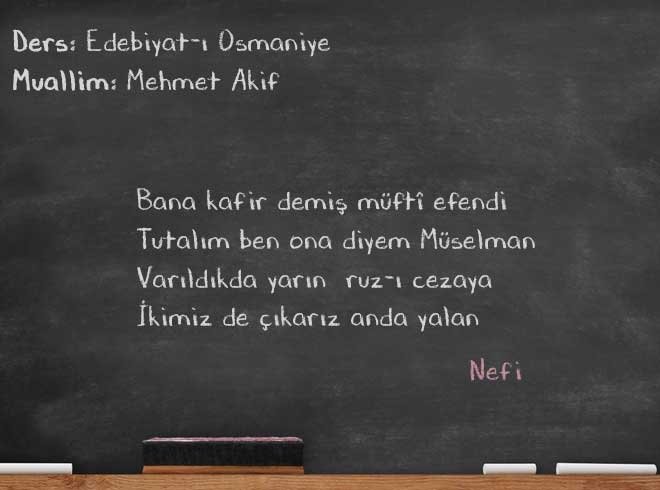 Ders: Edebiyat-ı Osmaniye
Muallim: Mehmet Akif
Bana kafir demiş müftî efendi
Tutalım ben ona diyem Müselman
Varıldıkda yarın ruz-ı cezaya
İkimiz de çıkarız anda yalan
Nefi